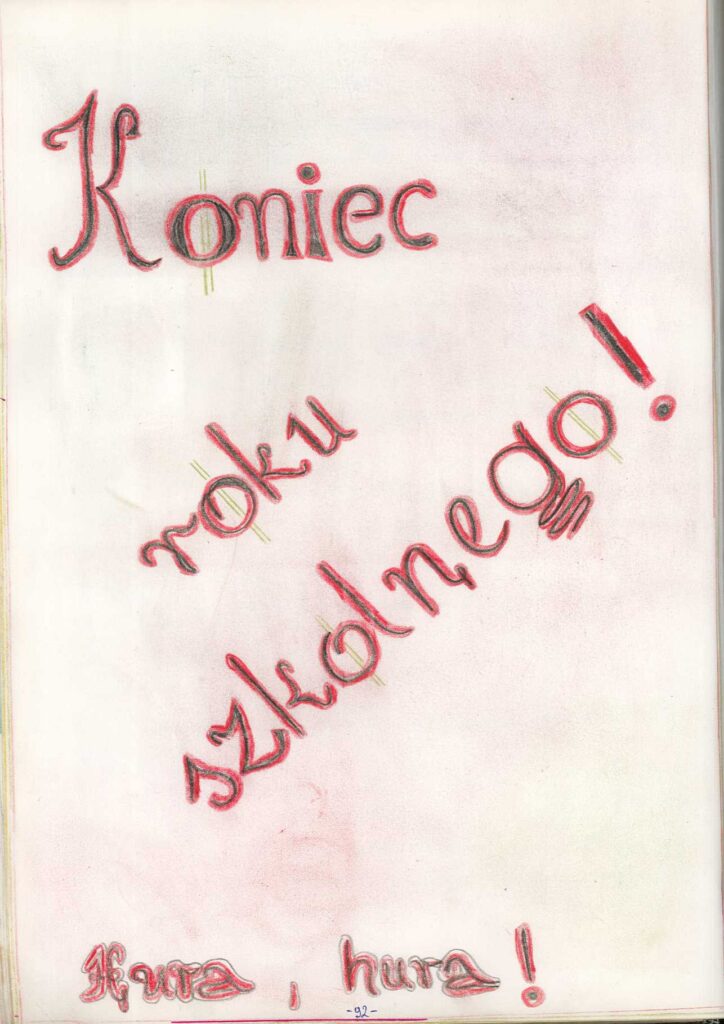 Koniec
roku
szkolnego!
Hura, hura!
-92-